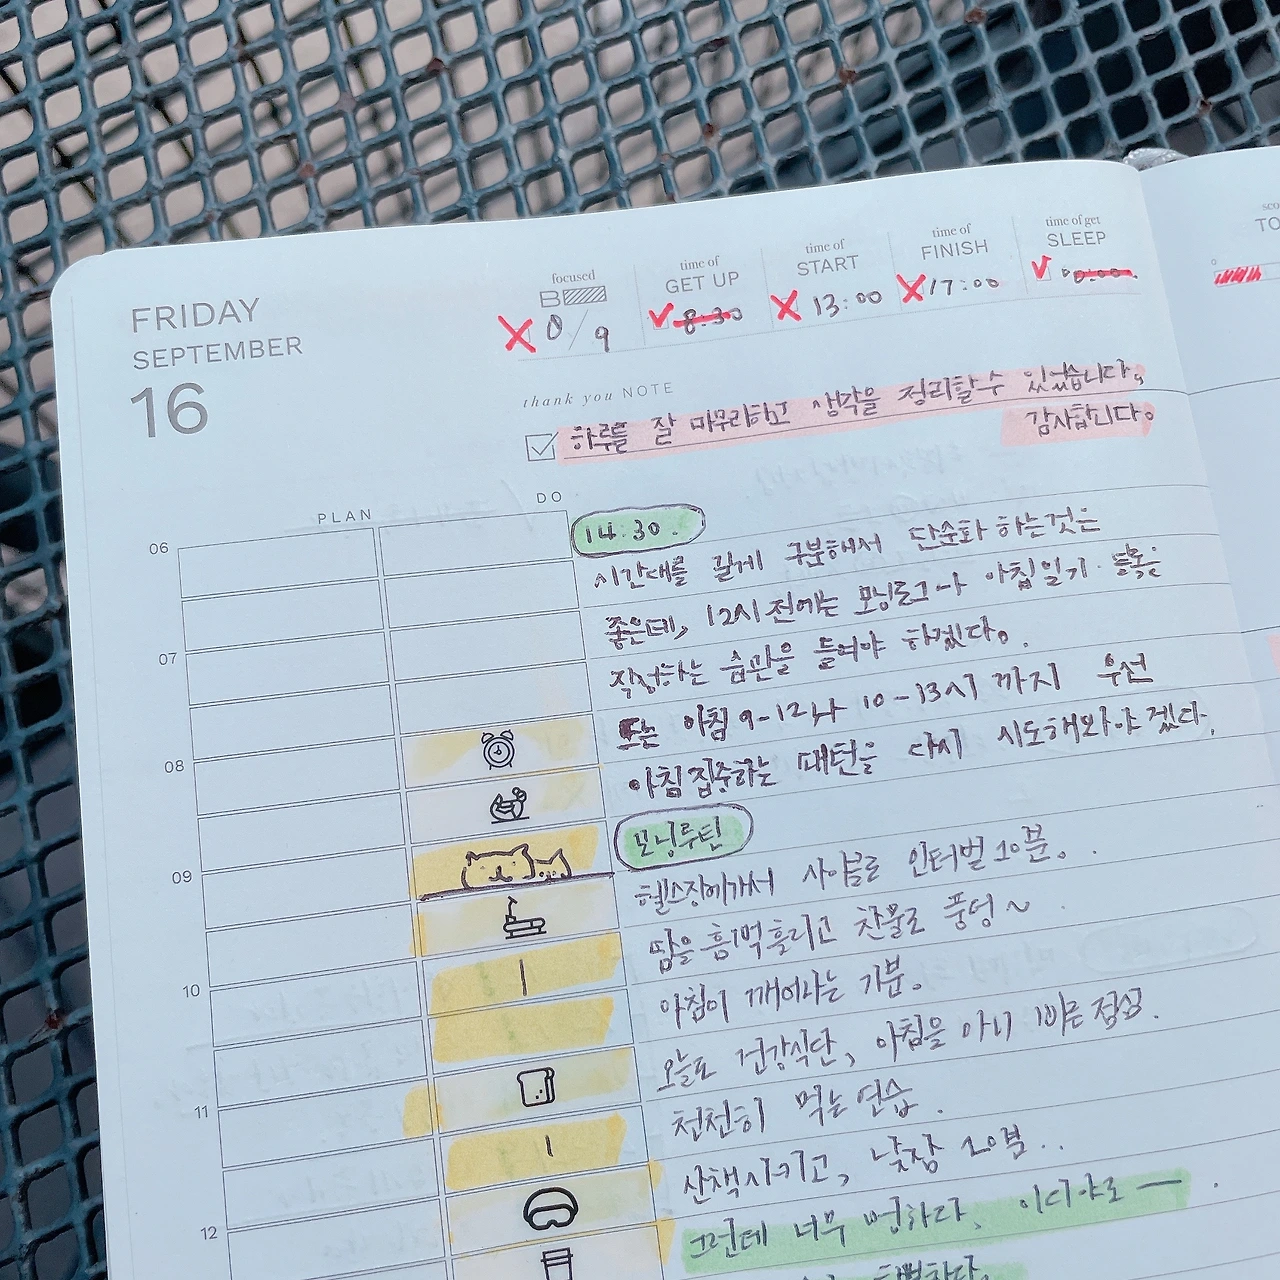 FRIDAY
SEPTEMBER
16
focused
B
0/9
time of
GET UP
8:30
time of
START
13:00
time of
FINISH
17:00
time of get
SLEEP
00:00.
sco
TO
thank you NOTE
하루를 잘 마무리하고 생각을 정리할수 있었습니다.
감사합니다.
PLAN
DO
06
07
08
09
10
11
12
14:30.
시간대를 길게 구분해서 단순화 하는것은
좋은데, 12시 전에는 모닝로그나 아침일기 등록은
작성하는 습관을 들여야 하겠다.
또는 아침 9-12나 10-13시 까지 우선
아침 집중하는 패턴을 다시 시도해봐야 겠다.
모닝루틴
헬스장에가서 사이클로 인터벌 20분.
땀을 흠뻑흘리고 찬물로 풍덩~
아침이 깨어나는 기분.
오늘도 건강식단, 아침을 아니 빠른 점심.
천천히 먹는 연습.
산책시키고, 낮잠 20분..
그런데 너무 멍하다. 이디야로 —.